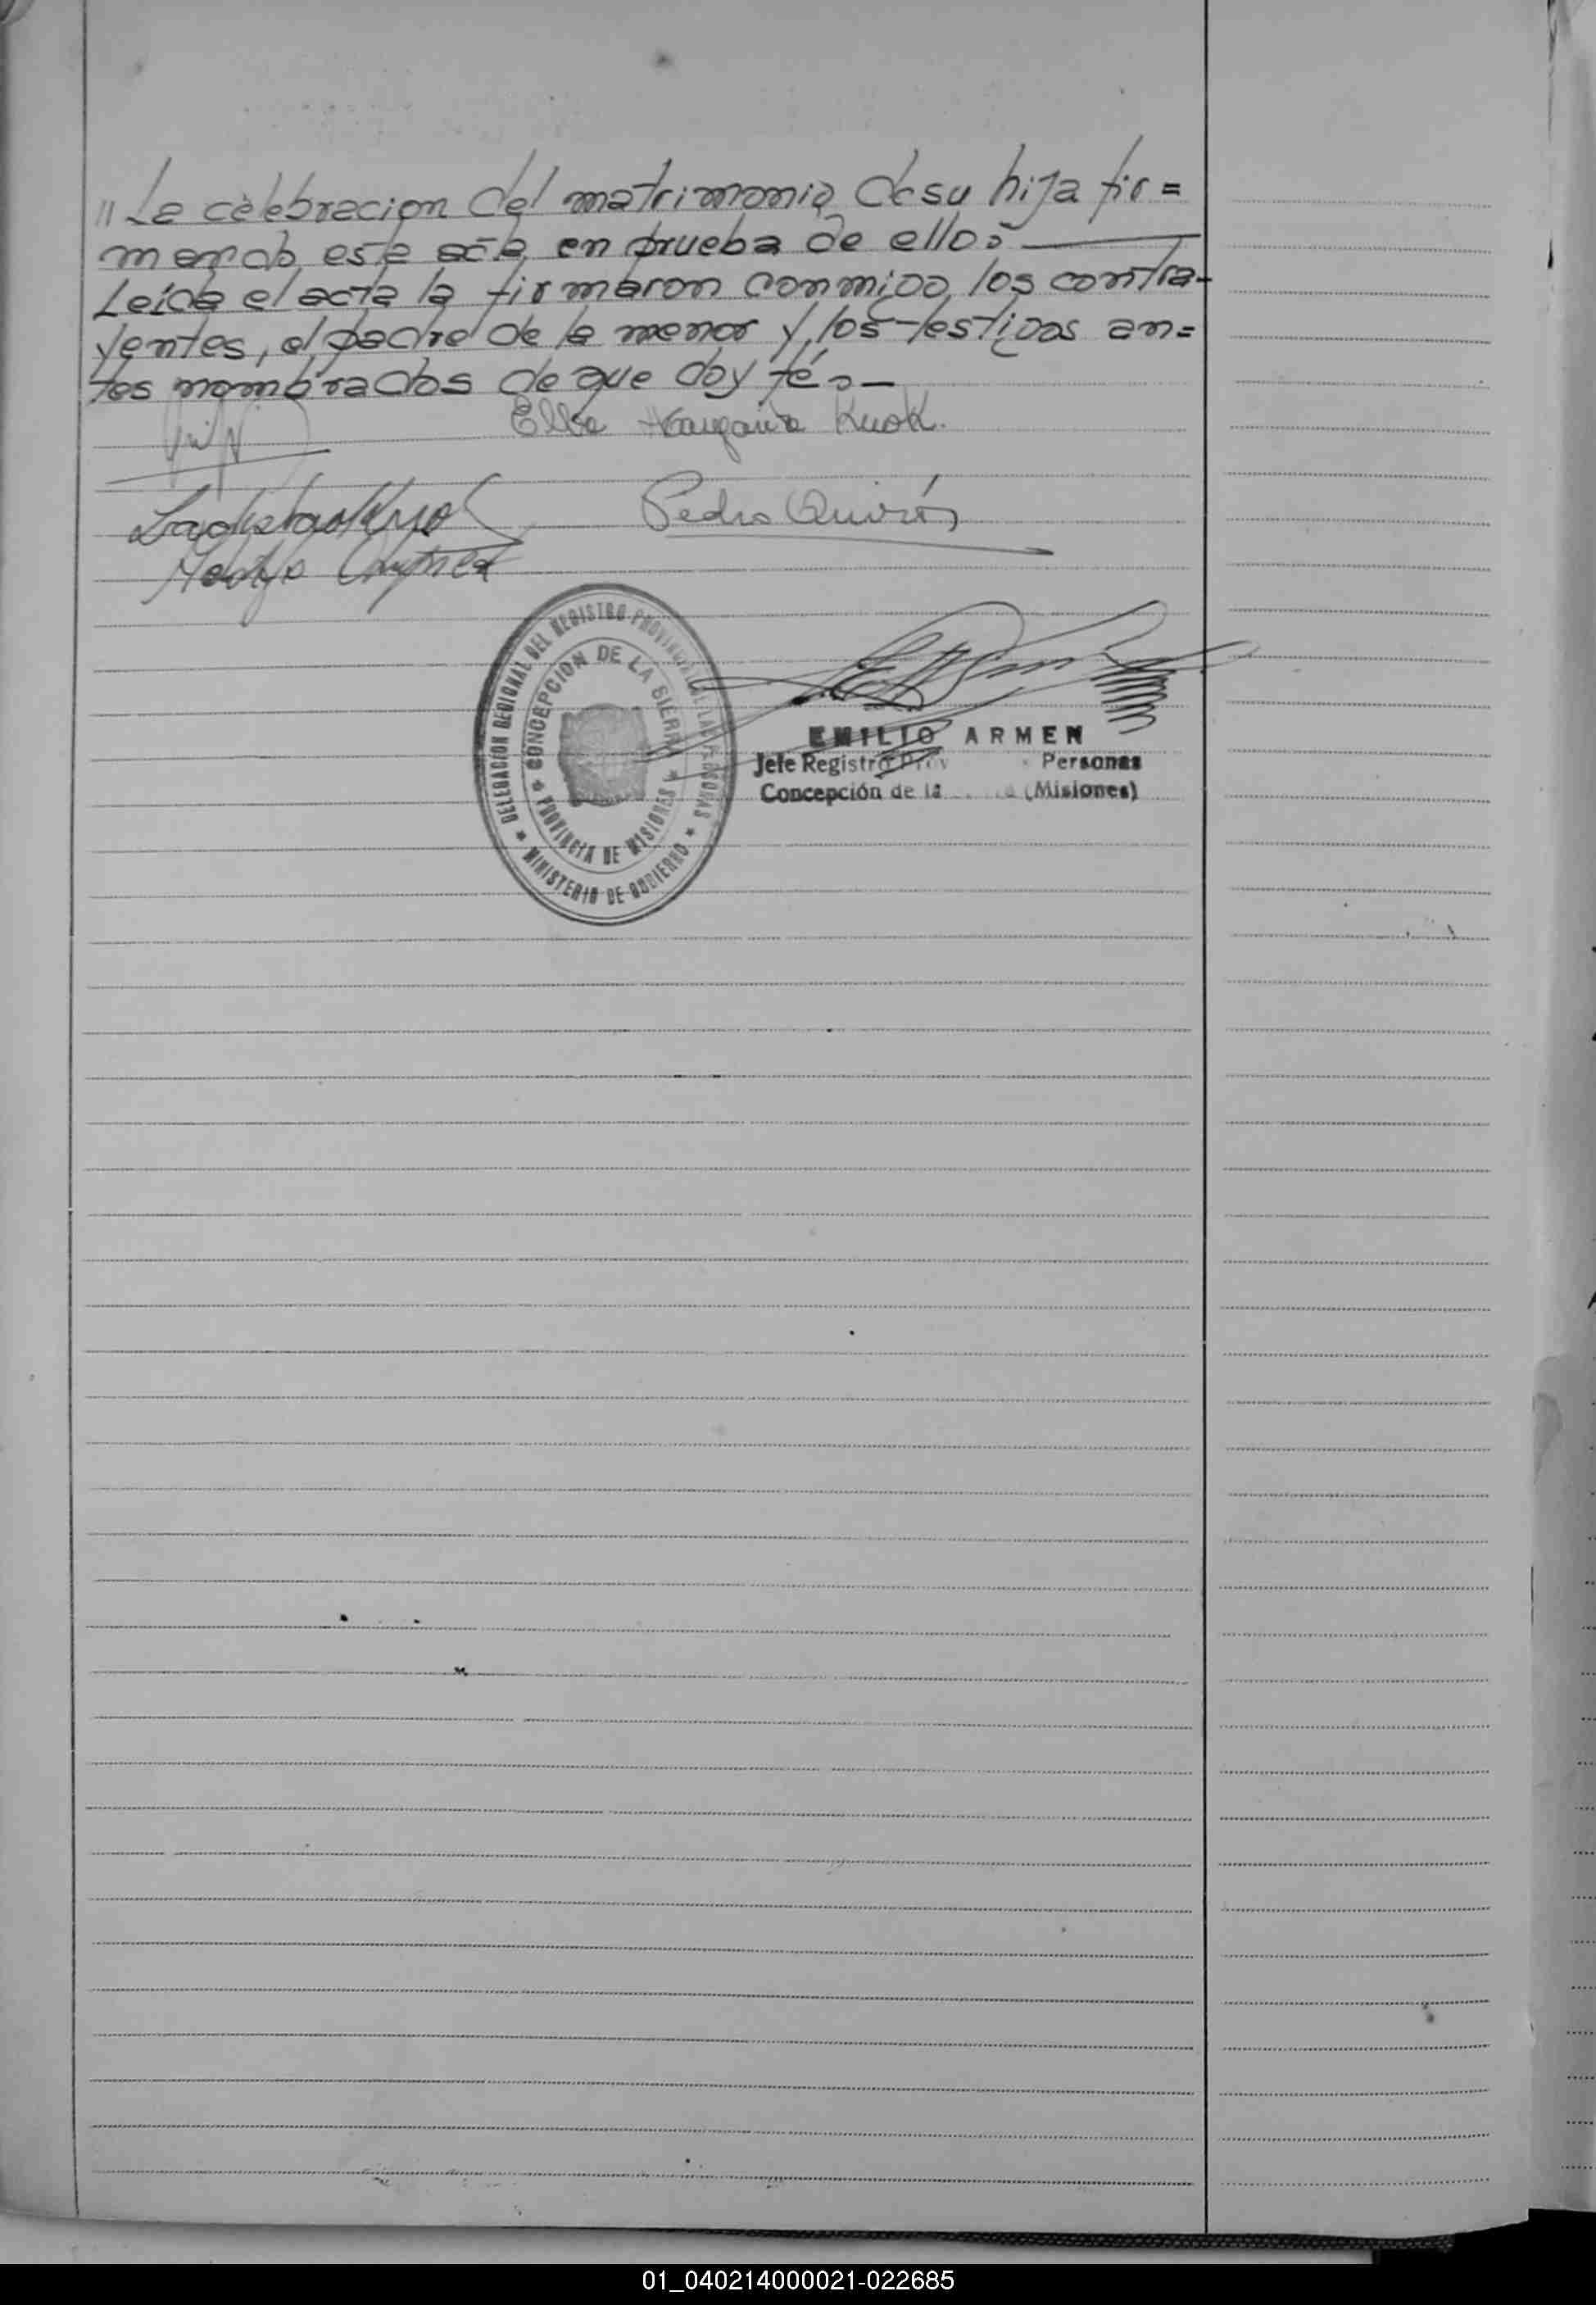 " La celebracion del matrimonio de su hija fir=
mando este acta en prueba de ello.
Leída el acta la firmaron conmigo los contra-
yentes, el padre de la menor y los testigos an=
tes nombrados de que doy fé.
Elba Margarita Kuok.
Pedro Quirós
DELEGACION REGIONAL DEL REGISTRO PROVINCIAL DE LAS PERSONAS
CONCEPCION DE LA SIERRA
PROVINCIA DE MISIONES
MINISTERIO DE GOBIERNO
EMILIO ARMEN
Jefe Registro Prov Personas
Concepción de la (Misiones)
01_040214000021-022685